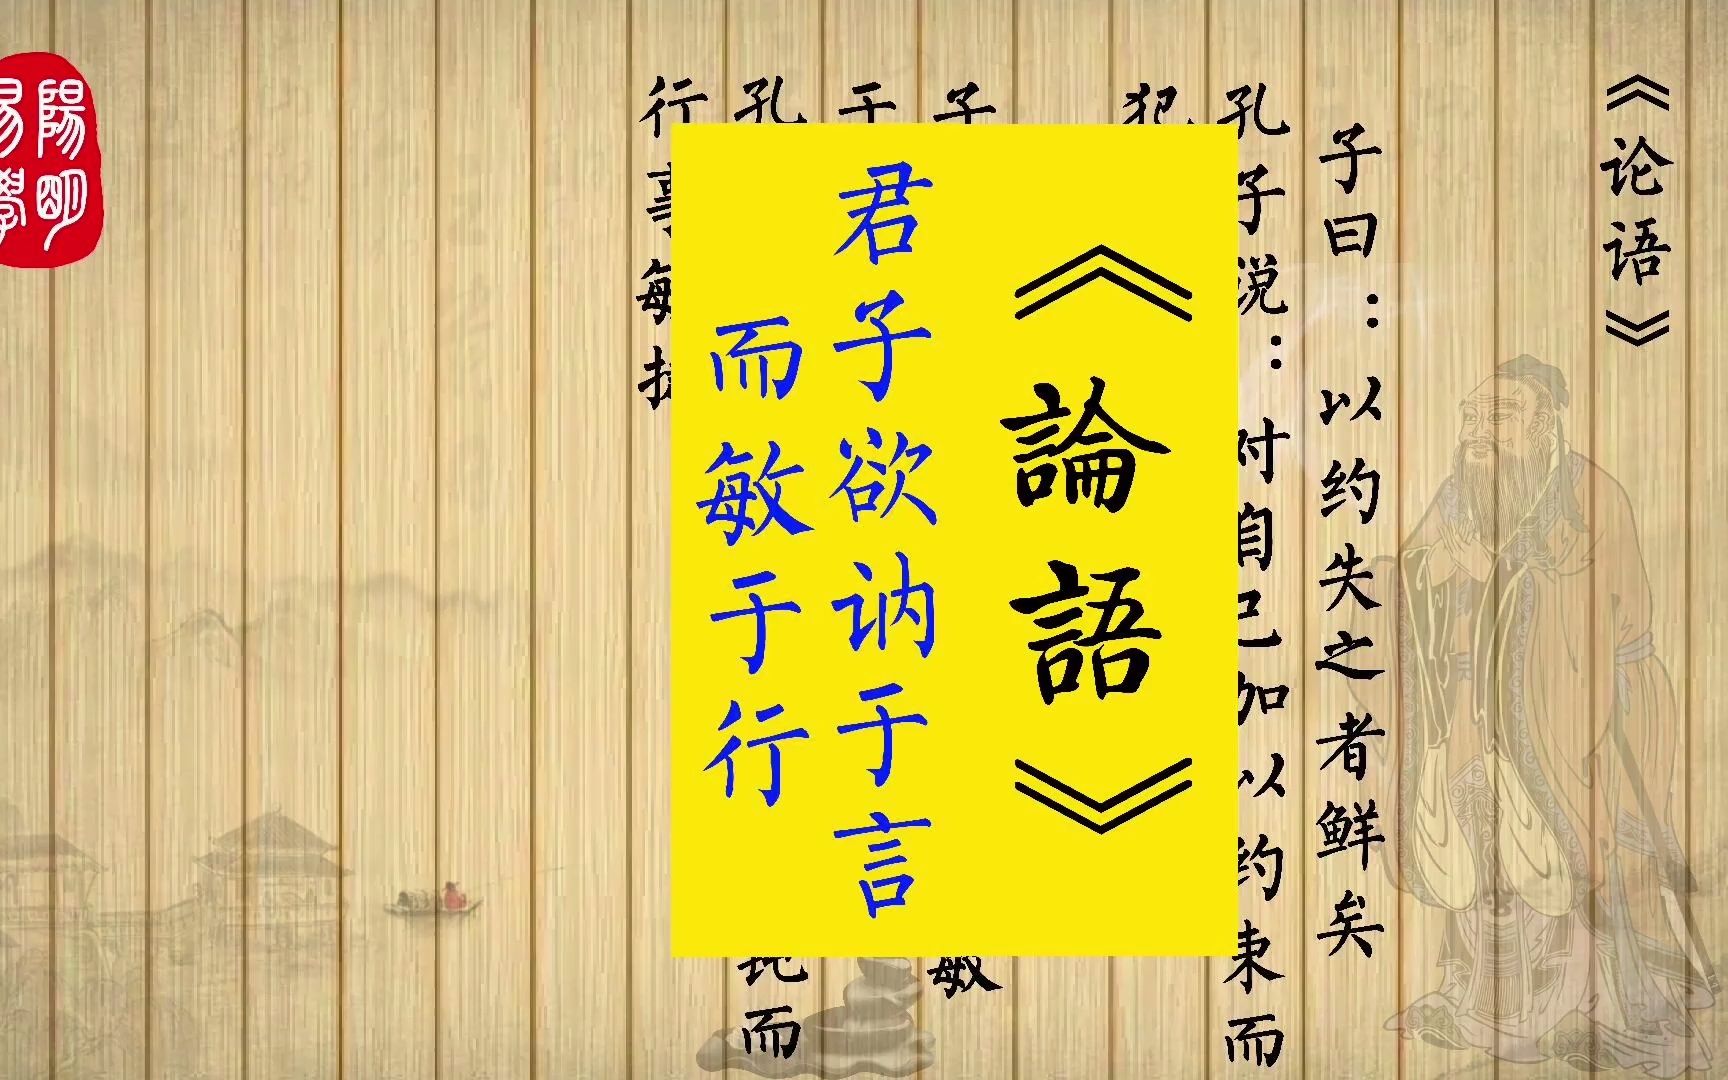 《论语》
子曰：以约失之者鲜矣
孔子说：对自己加以约束而
犯
《論語》
君子欲讷于言
而敏于行
子 敏
于
孔 而
行事敏
陽明
易學